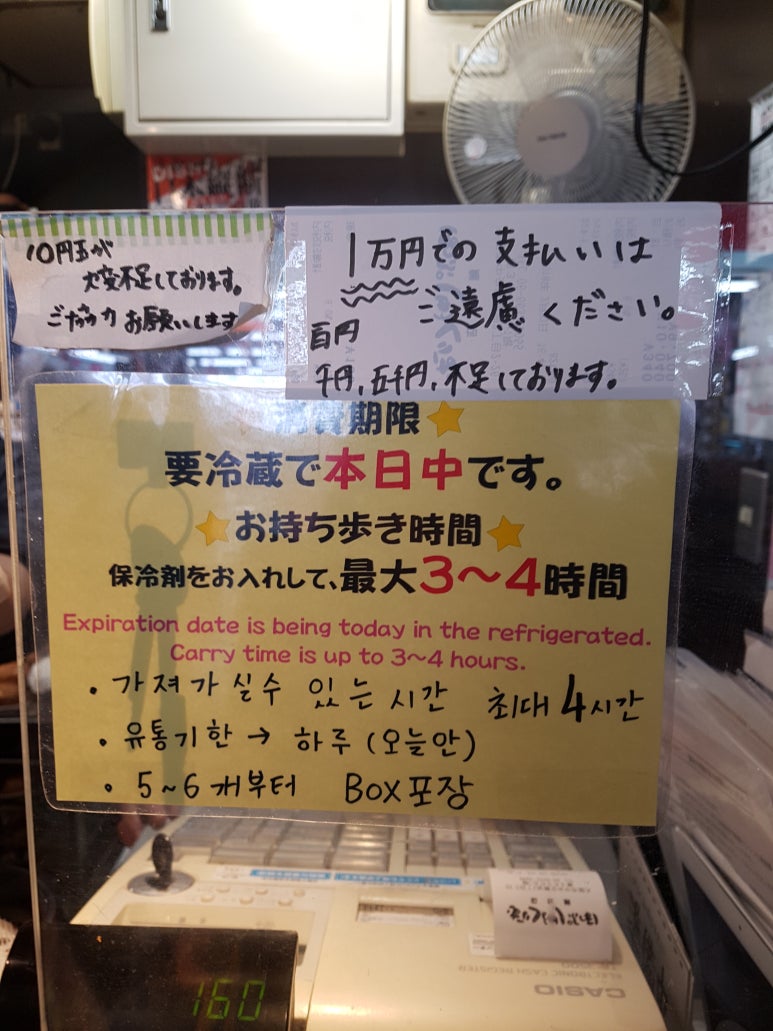 10円玉が
大変不足しております。
ご協力お願いします
1万円での支払いは
ご遠慮ください。
百円
千円,五千円,不足しております。
費期限
要冷蔵で本日中です。
お持ち歩き時間
保冷剤をお入れして、最大3～4時間
Expiration date is being today in the refrigerated.
Carry time is up to 3～4 hours.
• 가져가실수 있는 시간 최대 4시간
• 유통기한 → 하루 (오늘안)
• 5~6개부터 BOX포장
160
ELECTRONIC CASH REGISTER
CASIO